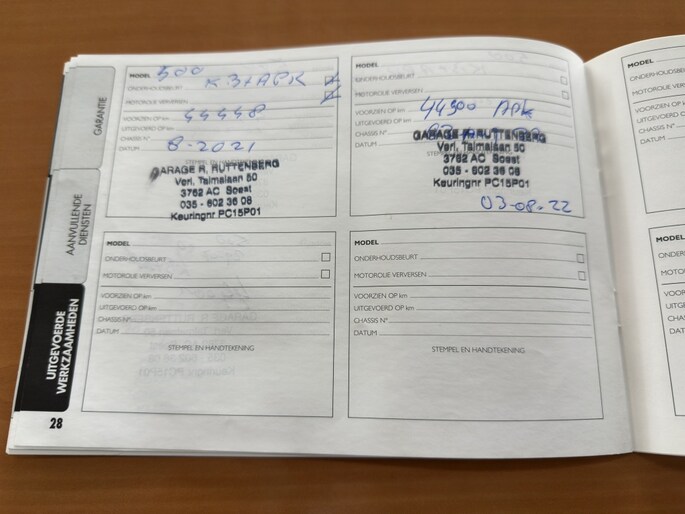 GARANTIE
AANVULLENDE
DIENSTEN
UITGEVOERDE
WERKZAAMHEDEN
28
MODEL 500
ONDERHOUDSBEURT
MOTOROLIE VERVERSEN
VOORZIEN OP km 44448
UITGEVOERD OP km
CHASSIS N°
DATUM 8-2021
STEMPEL EN HANDTEKENING
GARAGE R. RUTTENBERG
Verl. Talmalaan 50
3762 AC Soest
035 - 602 36 08
Keuringnr PC15P01
MODEL
ONDERHOUDSBEURT
MOTOROLIE VERVERSEN
VOORZIEN OP km 44500 APK
UITGEVOERD OP km
CHASSIS N°
DATUM
GARAGE R. RUTTENBERG
Verl. Talmalaan 50
3762 AC Soest
035 - 602 36 08
Keuringnr PC15P01
03-08-22
MODEL
ONDERHOUDSBEURT
MOTOROLIE VERVERSEN
VOORZIEN OP km
UITGEVOERD OP km
CHASSIS N°
DATUM
STEMPEL EN HANDTEKENING
MODEL
ONDERHOUDSBEURT
MOTOROLIE VERVERSEN
VOORZIEN OP km
UITGEVOERD OP km
CHASSIS N°
DATUM
STEMPEL EN HANDTEKENING
MODEL
CHASSIS N°
DATUM
MODEL
CHASSIS N°
DATUM